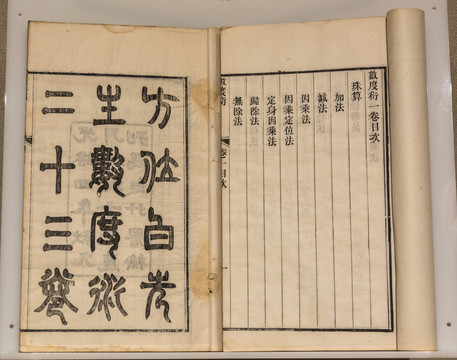 數度衍一卷目次
珠算
加法
減法
因乘法
因乘定位法
定身因乘法
歸除法
無除法
數度衍 卷一目次
方位白先
生數度衍
二十三卷